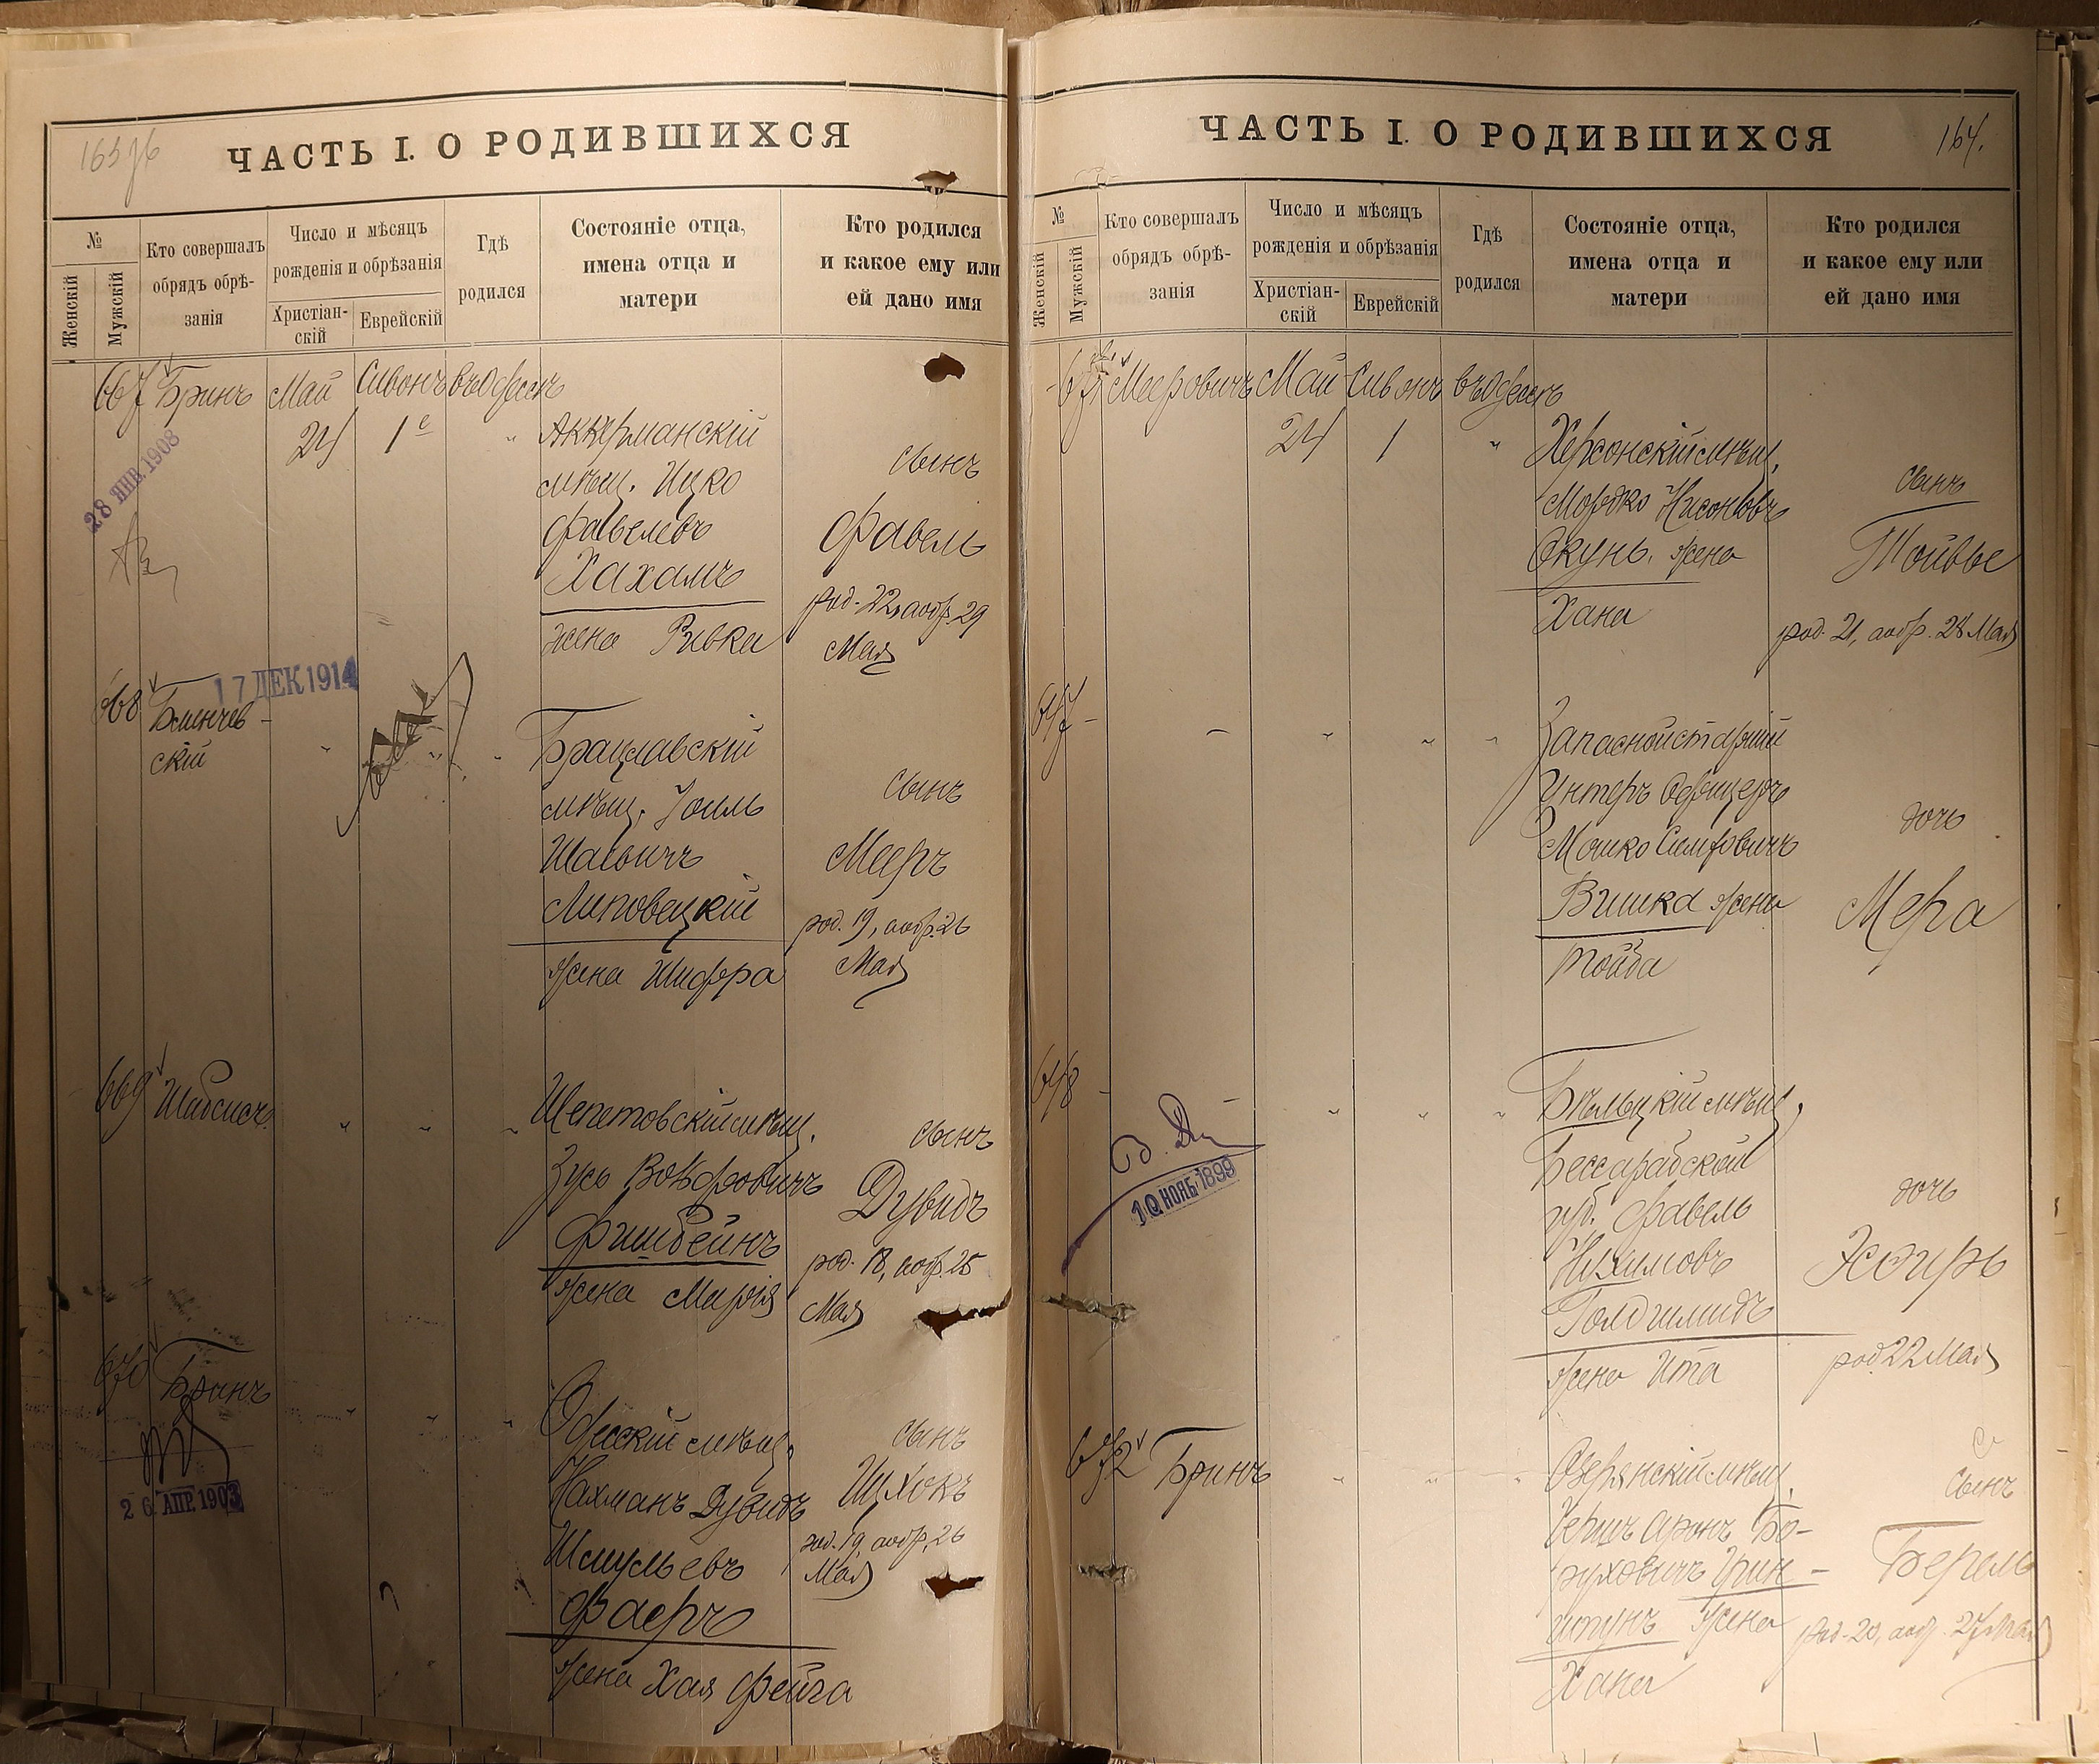 ЧАСТЬ I. О РОДИВШИХСЯ
№
Женскій
Мужскій
Кто совершалъ
обрядъ обрѣ-
занія
Число и мѣсяцъ
рожденія и обрѣзанія
Христіан-
скій
Еврейскій
Гдѣ
родился
Состояніе отца,
имена отца и
матери
Кто родился
и какое ему или
ей дано имя
667 Бринъ Май Сивонъ въ Одессѣ
24 1е " Аккерманскій
мѣщ. Ицко
Фавелевъ
Хахамъ
жена Ривка
сынъ
Фавель
род. 22, а обр. 29
Мая
28 ЯНВ. 1908
17 ДЕК 1914
668
Брацлавскій
мѣщ. Іоиль
Липовецкій
жена Шифра
сынъ
Мееръ
род. 19, а обр. 26
Мая
669 Шабсисъ
Шепетовскій мѣщ.
Зусь Вольфовичъ
Фишбейнъ
жена Марія
сынъ
Дувидъ
род. 18, а обр. 25
Мая
670 Бринъ
26 АПР. 1903
Одесскій мѣщ.
Нахманъ Дувидъ
Шмульевъ
Фаеръ
жена Хая Фейга
сынъ
Ицхокъ
род. 19, а обр. 26
Мая
ЧАСТЬ I. О РОДИВШИХСЯ
164.
№
Женскій
Мужскій
Кто совершалъ
обрядъ обрѣ-
занія
Число и мѣсяцъ
рожденія и обрѣзанія
Христіан-
скій
Еврейскій
Гдѣ
родился
Состояніе отца,
имена отца и
матери
Кто родился
и какое ему или
ей дано имя
671 Мееровичъ Май Сивонъ въ Одессѣ
24 1 " Херсонскій мѣщ.
Мордко Нисоновъ
Окунь. жена
Хана
сынъ
Тойвье
род. 21, а обр. 28 Мая
647 -
Запасной старшій
Унтеръ Офицеръ
Мошко
жена
Тойба
дочь
Мера
648 -
10 НОЯБ. 1899
Бѣльцкій мѣщ.
Бессарабской
губ. Фавель
Голдшмидъ
жена Ита
дочь
Эсѳирь
род. 22 Мая
672 Бринъ
Озерянскій мѣщ.
Гершъ Аронъ Бо-
руховичъ Грин-
шпунъ жена
Хана
сынъ
Берель
род. 20, а обр. 27 Мая